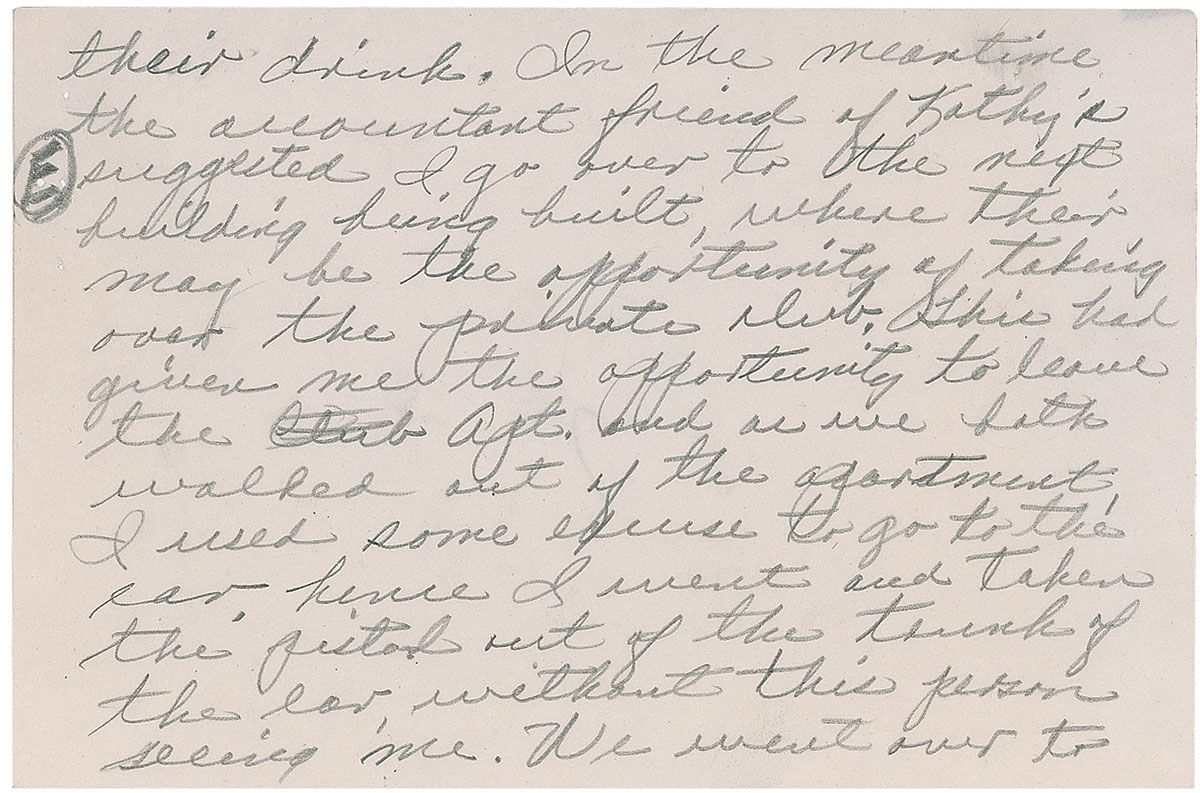 their drink. In the meantime
the accountant friend of Kathy's
E
suggested I go over to the next
building being built, where their
may be the opportunity of taking
over the private club. This had
given me the opportunity to leave
the club Apt. and as we both
walked out of the apartment,
I used some excuse to go to the
car, hence I went and taken
the pistol out of the trunk of
the car, without this person
seeing me. We went over to